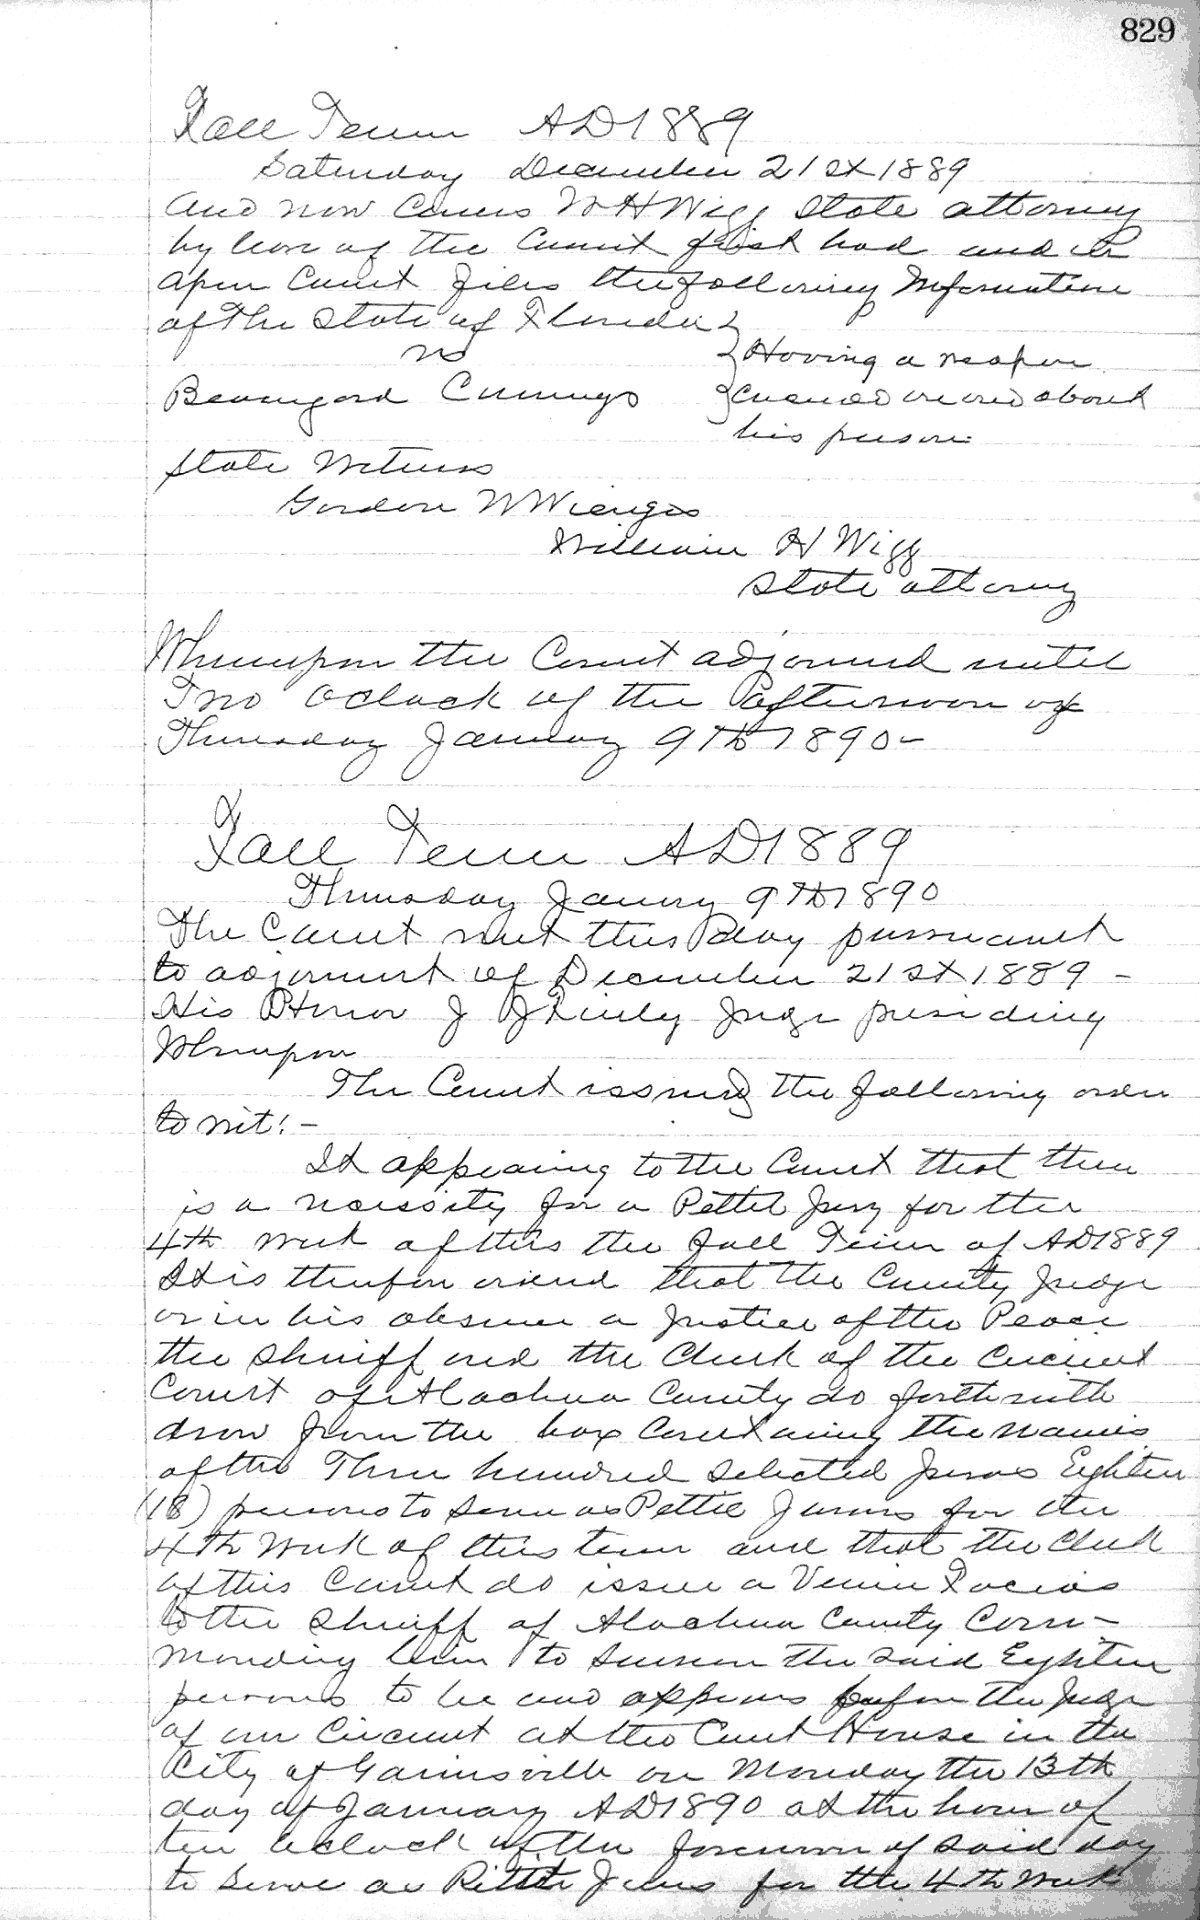 829
Fall Term AD 1889
Saturday December 21st 1889
And now Comes W H Wigg State attorney
by leave of the Court first had and in
open Court files the following Information
of The State of Florida
vs
Having a weapon
Beauregard Cummings
concealed on and about
his person
State Witness
Gordon W
William H Wigg
State attorney
Whereupon the Court adjourned until
Two Oclock of the afternoon of
Thursday January 9th 1890-
Fall Term AD 1889
Thursday January 9th 1890
The Court met this day pursuant
to adjournment of December 21st 1889 -
His Honor J J Finley Judge presiding
Whereupon
The Court issued the following order
to wit! -
It appearing to the Court that there
is a necessity for a Pettit Jury for the
4th week of this the Fall Term of AD 1889
It is therefore ordered that the County Judge
or in his absence a Justice of the Peace
the Sheriff and the Clerk of the Circuit
Court of Alachua County do forthwith
draw from the box Containing the names
of the Three hundred Selected Jurors Eighteen
(18) persons to serve as Pettit Jurors for the
4th week of this term and that the Clerk
of this Court do issue a Venire Facias
to the Sheriff of Alachua County Com-
manding him to summon the said Eighteen
persons to be and appear before the Judge
of our Circuit at the Court House in the
City of Gainesville on Monday the 13th
day of January AD 1890 at the hour of
ten oclock of the forenoon of said day
to serve as Pettit Jurors for the 4th week